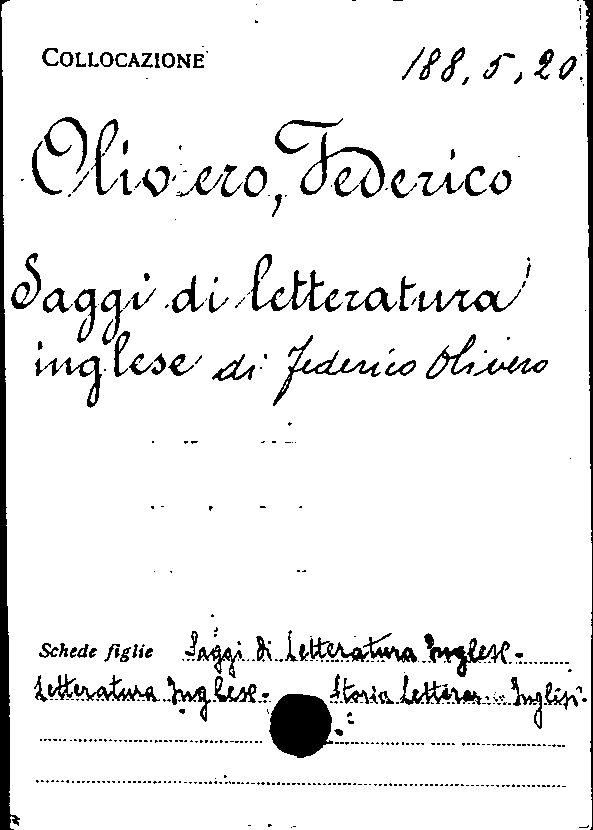 COLLOCAZIONE 188, 5, 20
Olivero, Federico
Saggi di letteratura
inglese di Federico Olivero
Schede figlie Saggi di Letteratura Inglese -
Letteratura Inglese - Storia